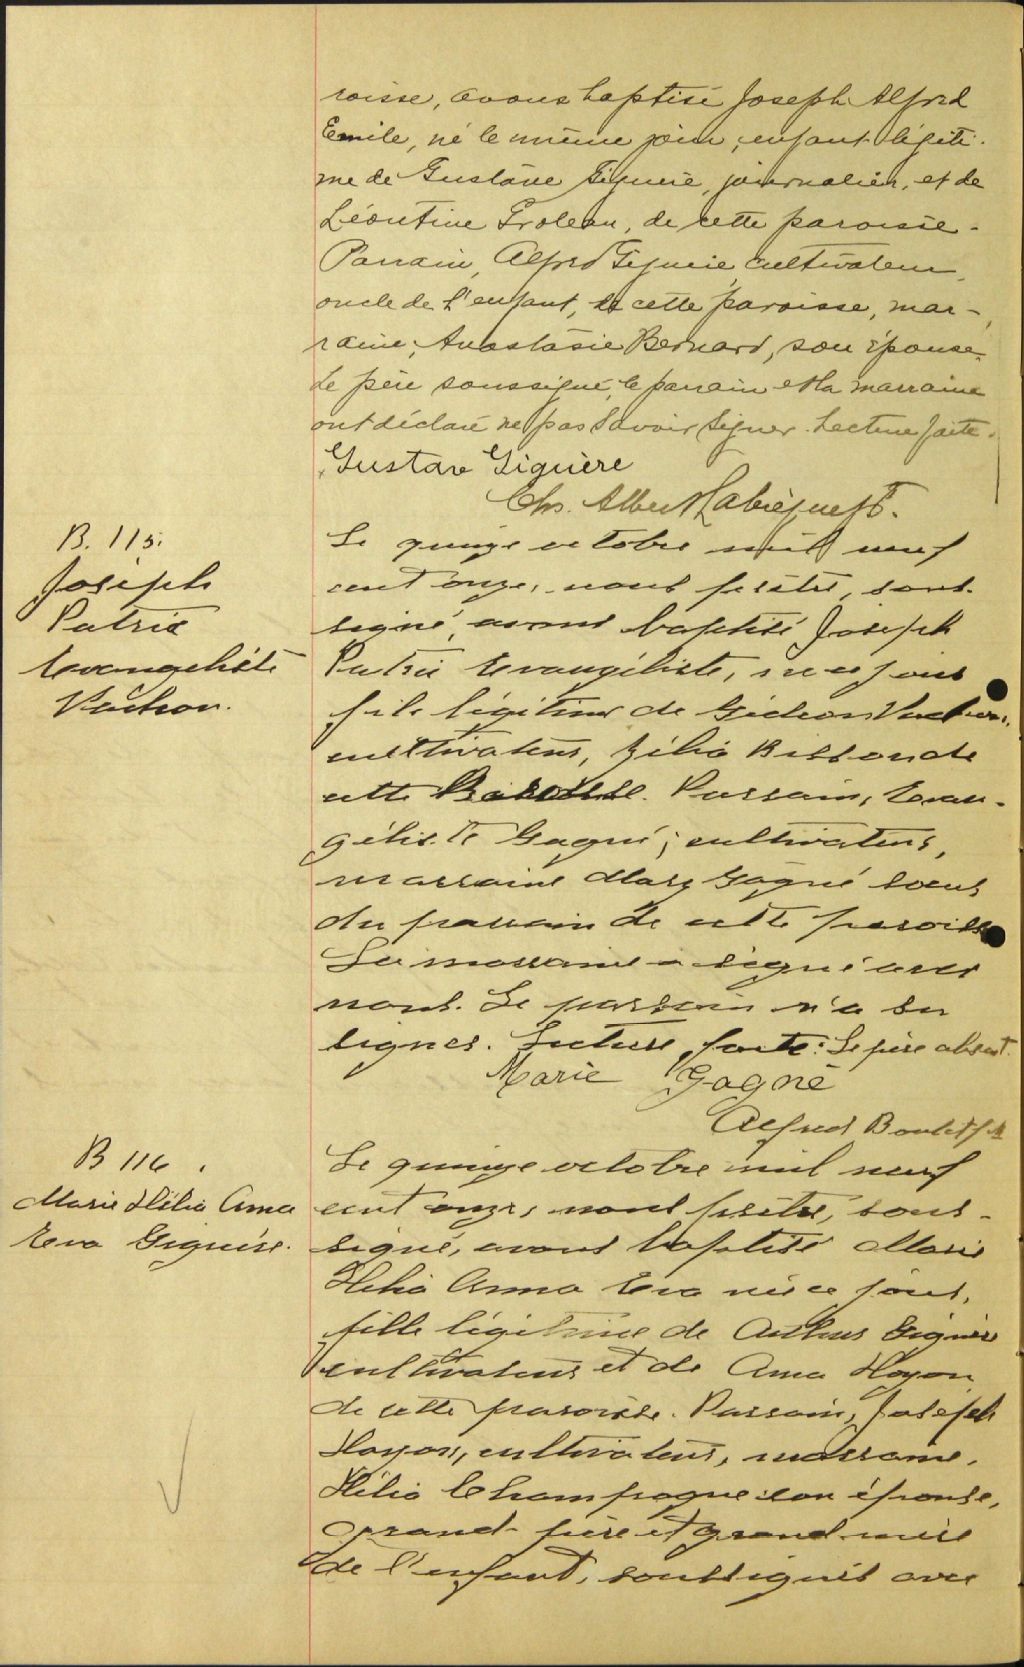 roisse, avons baptisé Joseph Alfred
Emile, né le même jour, enfant légiti-
me de Gustave Giguère, journalier, et de
Léontine Groleau, de cette paroisse.
Parrain, Alfred Giguère, cultivateur,
oncle de l'enfant, de cette paroisse, mar-
raine, Anastasie Bernard, son épouse.
Le père soussigné, le parrain et la marraine
ont déclaré ne pas savoir signer. Lecture faite.
Gustave Giguère
Chs. Albert
B. 115.
Joseph
Patrie
Evangéliste
Vachon.
Le quinze octobre mil neuf
cent onze, nous prêtre, sous-
signé, avons baptisé Joseph
Patrie Evangéliste, né ce jour
fils légitime de Gédéon Vachon,
cultivateur, Zélia Bisson de
cette Paroisse. Parrain, Evan-
géliste Gagné; cultivateur,
marraine Mary Gagné soeur
du parrain de cette paroisse
La marraine a signé avec
nous. Le parrain n'a su
signer. Lecture faite. Le père absent.
Marie Gagné
Alfred Boulet ptr
B 116.
Marie Hélia Anna
Eva Giguère.
Le quinze octobre mil neuf
cent onze, nous prêtre, sous-
signé, avons baptisé Marie
Hélia Anna Eva née ce jour,
fille légitime de Arthur Giguère
cultivateur et de Anna
de cette paroisse. Parrain, Joseph
cultivateur, marraine,
Hélia Champagne son épouse,
grand-père et grand-mère
de l'enfant, soussignés avec